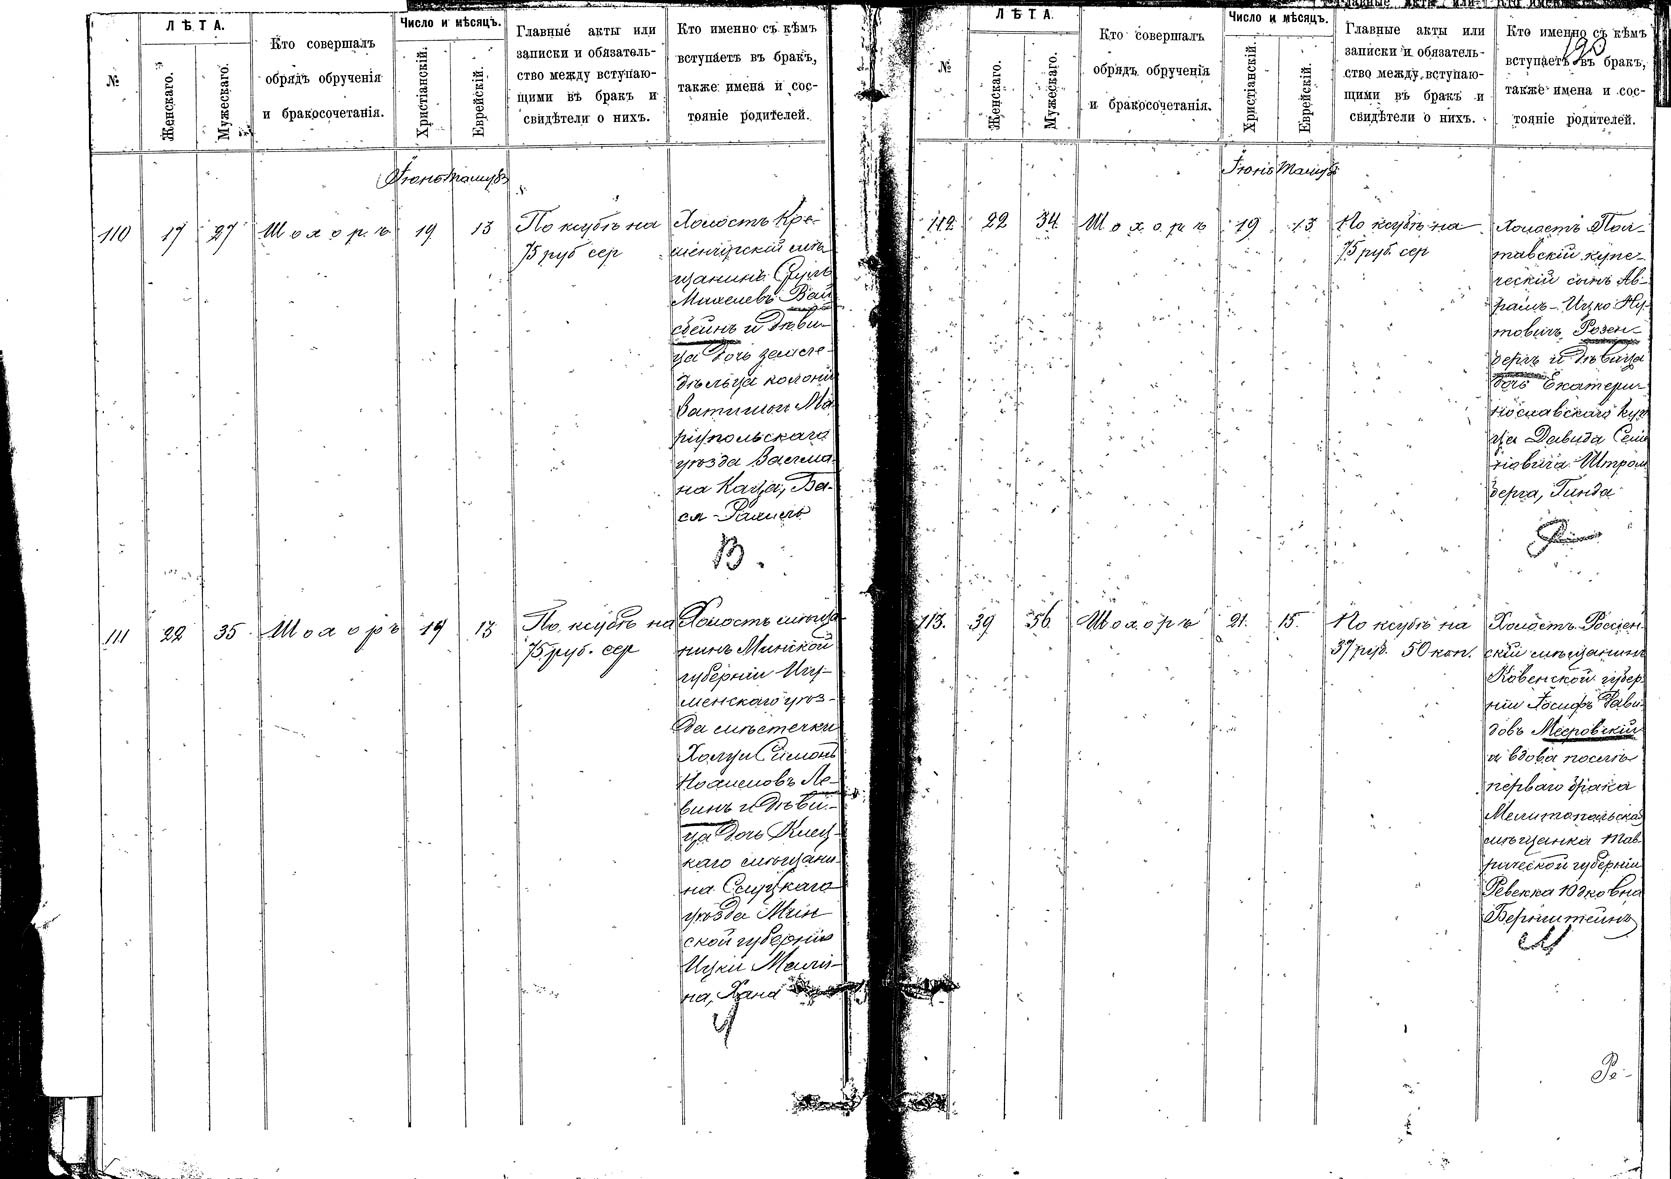 №
ЛѢТА.
Женскаго.
Мужескаго.
Кто совершалъ
обрядъ обрученія
и бракосочетанія.
Число и мѣсяцъ.
Христіанскій.
Еврейскій.
Главные акты или
записки и обязатель-
ство между вступаю-
щими въ бракъ и
свидѣтели о нихъ.
Кто именно съ кѣмъ
вступаетъ въ бракъ,
также имена и сос-
тояніе родителей.
Іюнь Тамузъ
110 17 27 Шохоръ 19 13
По ксубѣ на
75 руб сер
Холостъ Кре-
менчугскій мѣ-
щанинъ Сруль
Михелевъ Вай
сбейнъ и дѣви-
ца дочь земле-
дѣльца колоніи
Затишья Ма
ріупольскаго
уѣзда Залма-
на Каца, Ба-
ся-Рахиль
В.
111 22 35 Шохоръ 19 13
По ксубѣ на
75 руб. сер
Холостъ мѣща-
нинъ Минской
губерніи Игу-
менскаго уѣз-
да мѣстечка
Холуи Симонъ
Нохимовъ Ле-
винъ и дѣви-
ца дочь Клец-
каго мѣщани-
на Слуцкаго
уѣзда Мин
ской губерніи
Ицки Мали-
на, Хана
Л
№
ЛѢТА
Женскаго.
Мужескаго.
Кто совершалъ
обрядъ обрученія
и бракосочетанія.
Число и мѣсяцъ.
Христіанскій.
Еврейскій.
Главные акты или
записки и обязатель-
ство между вступаю-
щими въ бракъ и
свидѣтели о нихъ.
Кто именно съ кѣмъ
вступаетъ въ бракъ,
также имена и сос-
тояніе родителей.
190
Іюнь Тамузъ
112 22 34 Шохоръ 19 13
По ксубѣ на
75 руб. сер
Холостъ Пол-
тавскій купе-
ческій сынъ Ав-
рамъ-Ицко Ну-
товичъ Розен-
бергъ и дѣвица
дочь Екатери-
нославскаго куп
ца Давида Сеи
новича Штром
берга, Гинда
Р
113. 39 56 Шохоръ 21. 15.
По ксубѣ на
37 руб. 50 коп.
Холостъ Россіен-
скій мѣщанинъ
Ковенской губер
ніи Іосифъ Дави-
довъ Мееровскій
и вдова послѣ
перваго брака
Мелитопольская
мѣщанка Тав-
рической губерніи
Ревекка Юдковна
Бернштейнъ
М
Ре-